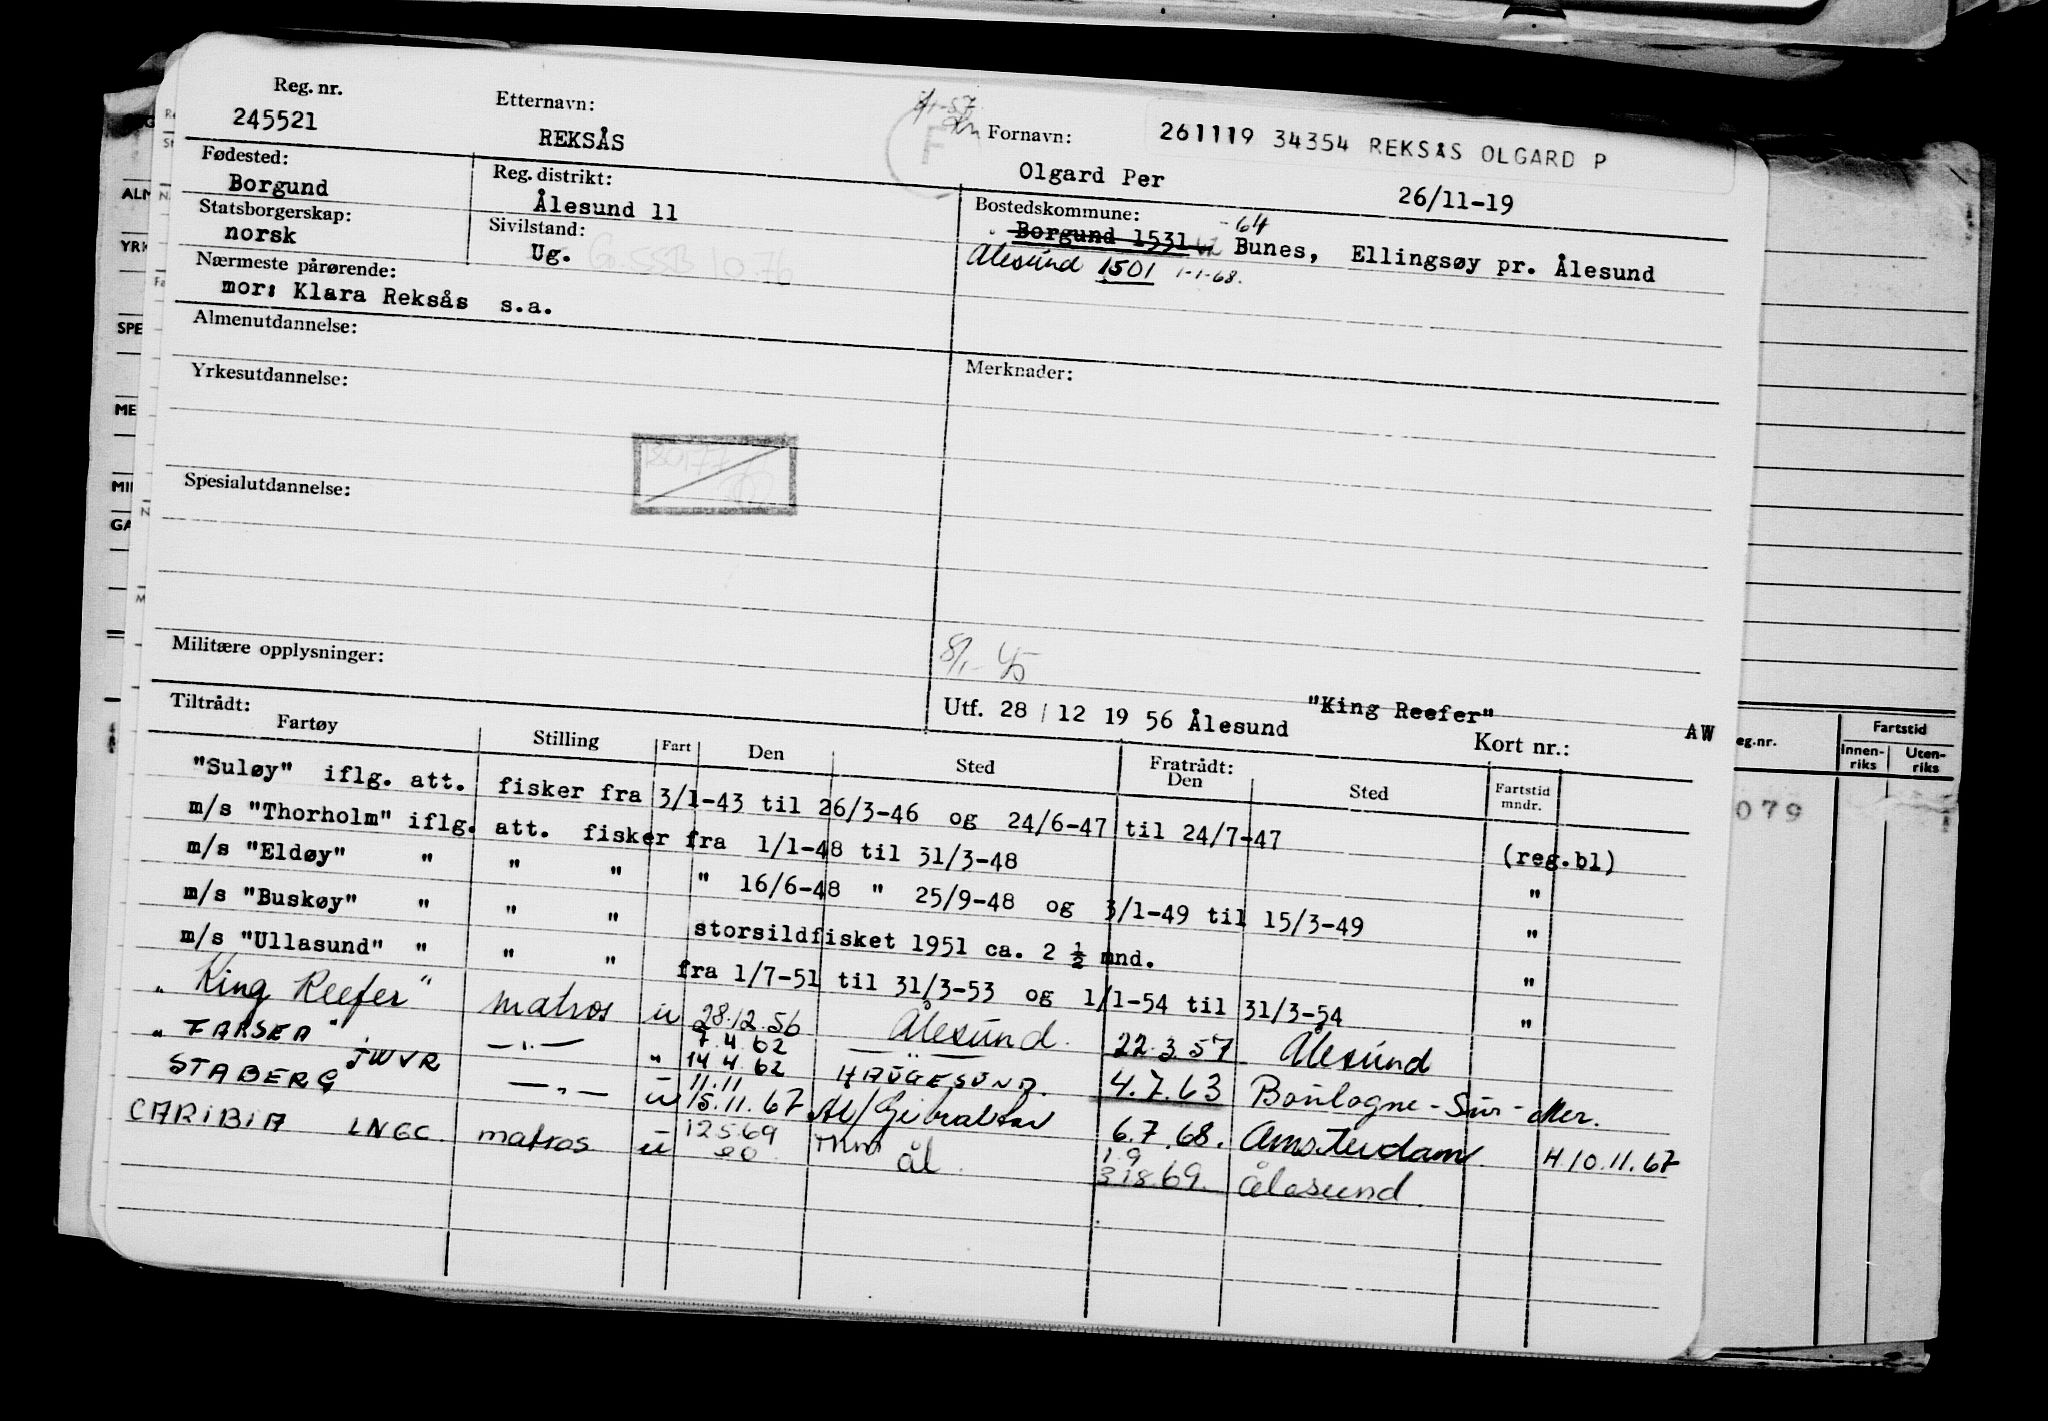 Reg. nr.
245521
Etternavn:
REKSÅS
Fornavn:
Olgard Per
261119 34354 REKSÅS OLGARD P
26/11-19
Fødested:
Borgund
Reg. distrikt:
Ålesund 11
Bostedskommune:
-64
Borgund 1531 Bunes, Ellingsøy pr. Ålesund
Ålesund 1501 1-1-68.
Statsborgerskap:
norsk
Sivilstand:
Ug.
Nærmeste pårørende:
mor: Klara Reksås s.a.
Almenutdannelse:
Yrkesutdannelse:
Merknader:
Spesialutdannelse:
Militære opplysninger:
8/1-45
Utf. 28 / 12 19 56 Ålesund "King Reefer" AW
Tiltrådt:
Fartøy Stilling Fart Den Sted Fratrådt: Den Sted Kort nr.: Fartstid mndr.
"Suløy" iflg. att. fisker fra 3/1-43 til 26/3-46 og 24/6-47 til 24/7-47 (reg.bl)
m/s "Thorholm" iflg. att. fisker fra 1/1-48 til 31/3-48 "
m/s "Eldøy" " " " " 16/6-48 " 25/9-48 og 3/1-49 til 15/3-49 "
m/s "Buskøy" " " " storsildfisket 1951 ca. 2 ½ mnd. "
m/s "Ullasund" " " " fra 1/7-51 til 31/3-53 og 1/1-54 til 31/3-54 "
" King Reefer " matros u 28.12.56 Ålesund. 22.3.57 Ålesund
" FARSEA " JWVR —"— " 7.4.62 14.4.62 HAUGESUND. 4.7.63 Boulogne-Sur-Mer.
STABERG —"— u 11.11 15.11.67 Ål/Gibraltar 6.7.68. Amsterdam. H 10.11.67
CARIBIA LNGC. matros u 12.5.69 20 ål. 1.9 31.8.69. Ålesund.
eg.nr.
Fartstid
Innen-riks
Uten-riks
079